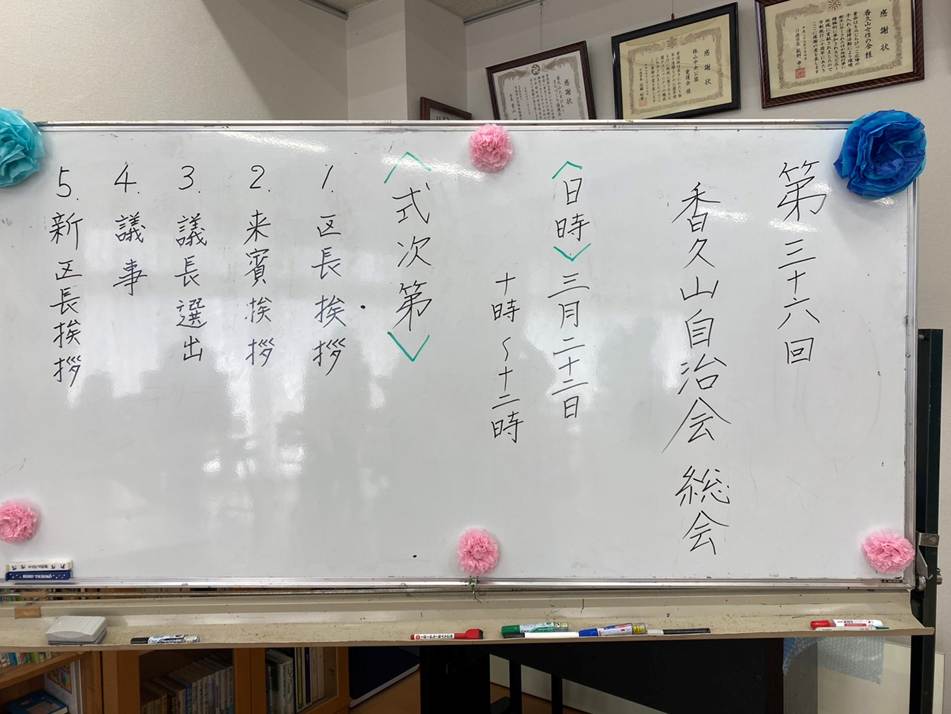 第三十六回
香久山自治会 総会
〈日時〉三月二十二日
十時～十二時
〈式次第〉
1. 区長挨拶
2. 来賓挨拶
3. 議長選出
4. 議事
5. 新区長挨拶
感謝状
感謝状
感謝状